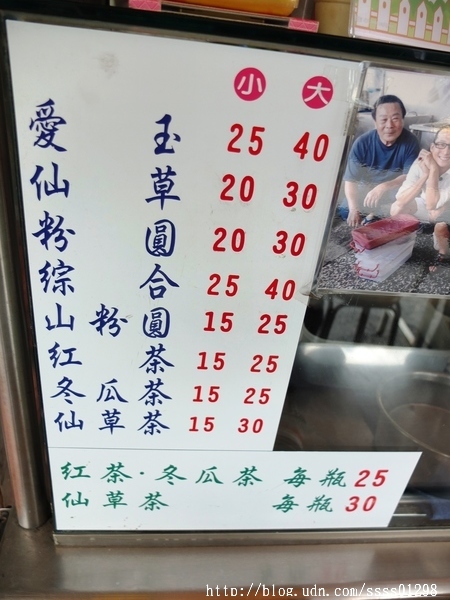 小 大
愛玉 25 40
仙草 20 30
粉圓 20 30
綜合 25 40
山粉圓 15 25
紅茶 15 25
冬瓜茶 15 25
仙草茶 15 30
紅茶·冬瓜茶 每瓶25
仙草茶 每瓶30
http://blog.udn.com/ssss01298